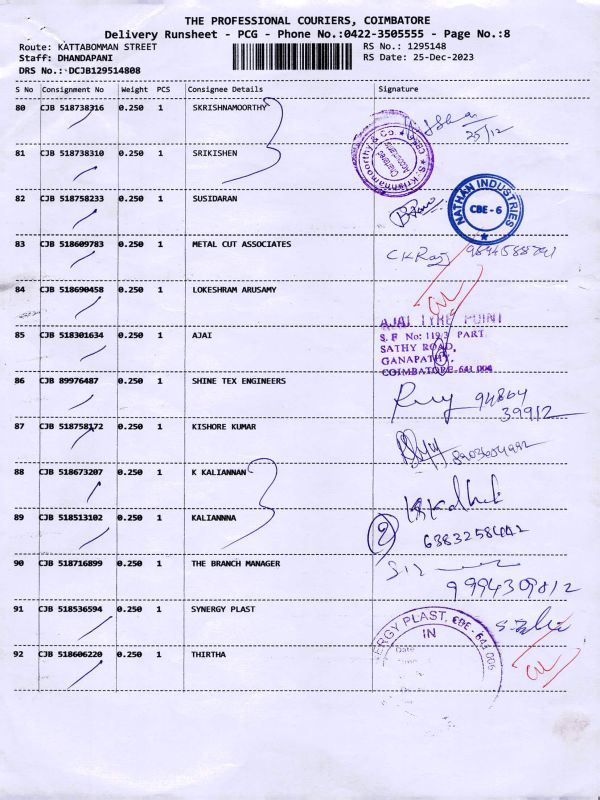 THE PROFESSIONAL COURIERS, COIMBATORE
Delivery Runsheet - PCG - Phone No.:0422-3505555 - Page No.:8
Route: KATTABOMMAN STREET
RS No.: 1295148
Staff: DHANDAPANI
RS Date: 25-Dec-2023
DRS No.: DCJB129514808
S No Consignment No Weight PCS Consignee Details Signature
80 CJB 518738316 0.250 1 SKRISHNAMOORTHY
25/12
S. Krishnamoorthy & Co. CBE
Chartered Accountants
81 CJB 518738310 0.250 1 SRIKISHEN
82 CJB 518758233 0.250 1 SUSIDARAN
NATHAN INDUSTRIES
CBE - 6
83 CJB 518609783 0.250 1 METAL CUT ASSOCIATES
CK Raj
84 CJB 518690458 0.250 1 LOKESHRAM ARUSAMY
85 CJB 518301634 0.250 1 AJAI
AJAI TYRE POINT
S.F No: 119,3 PART.
SATHY ROAD,
GANAPATHY,
COIMBATORE-641 006
86 CJB 89976487 0.250 1 SHINE TEX ENGINEERS
94864
39912
87 CJB 518758172 0.250 1 KISHORE KUMAR
88 CJB 518673207 0.250 1 K KALIANNAN
89 CJB 518513102 0.250 1 KALIANNNA
2
90 CJB 518716899 0.250 1 THE BRANCH MANAGER
9994309812
91 CJB 518536594 0.250 1 SYNERGY PLAST
ERGY PLAST, CBE - 641 006
IN
Date
92 CJB 518606220 0.250 1 THIRTHA